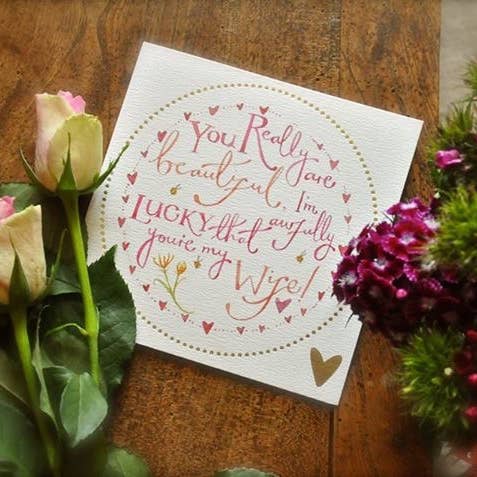 You Really are
beautiful, I'm
Lucky that awfully
you're my
Wife!